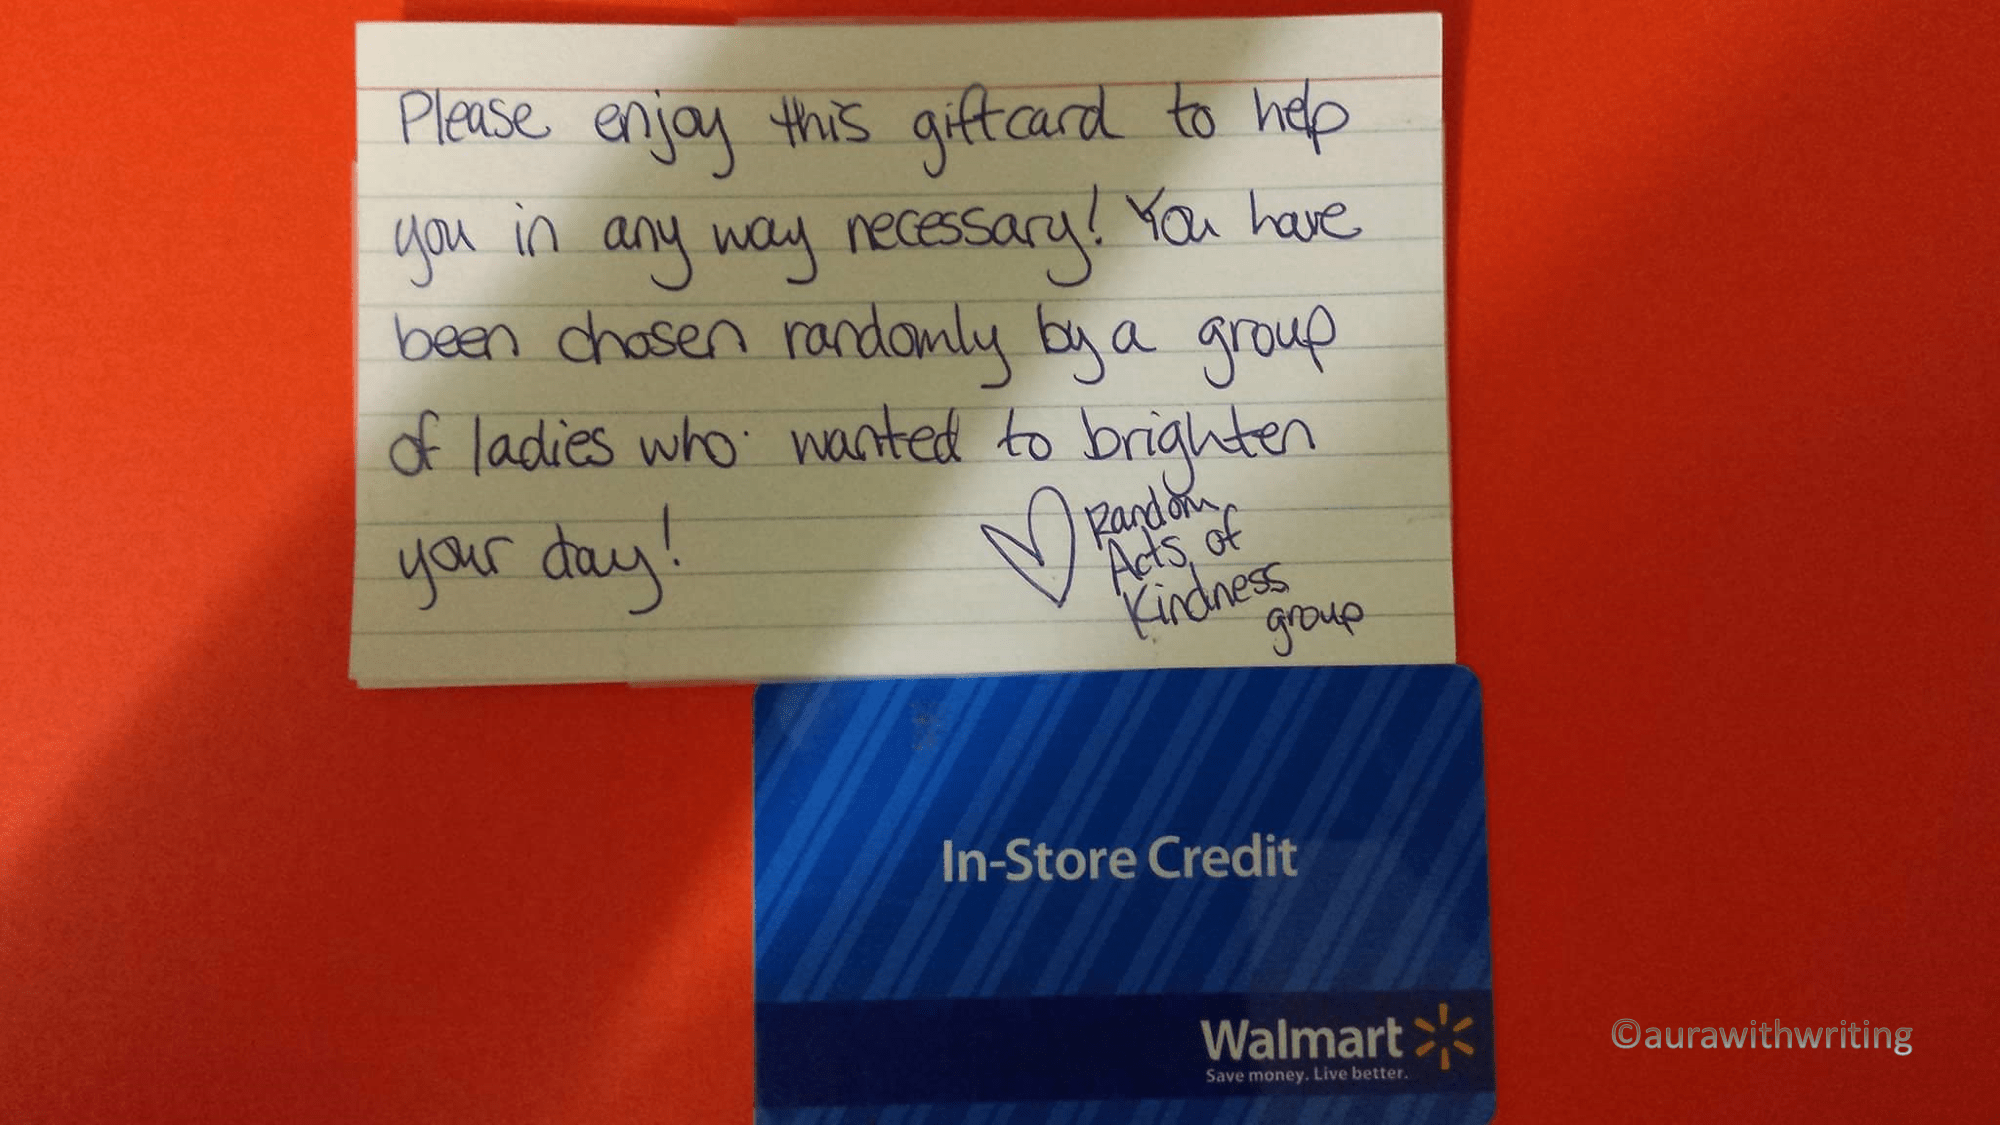 Please enjoy this giftcard to help
you in any way necessary! You have
been chosen randomly by a group
of ladies who wanted to brighten
your day!
Random
Acts of
Kindness
group
In-Store Credit
Walmart
Save money. Live better.
©aurawithwriting